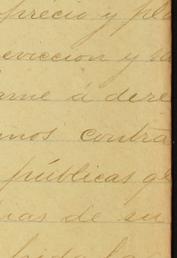 precio y pla
eviccion y sa
arme á dere
mos contra
públicas qe
ias de su